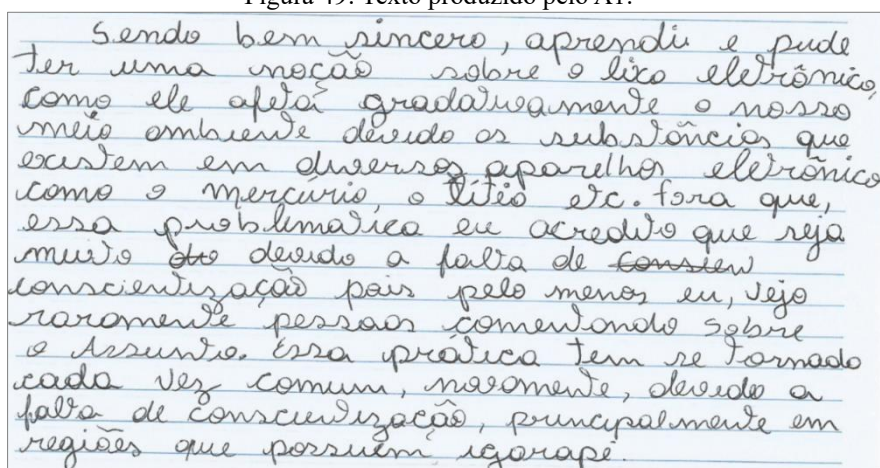 Figura 49: Texto produzido pelo A1.
Sendo bem sincero, aprendi e pude
ter uma noção sobre o lixo eletrônico,
como ele afeta gradativamente o nosso
meio ambiente devido as substâncias que
existem em diversos aparelhos eletrônico
como o mercúrio, o lítio etc. fora que,
essa problematica eu acredito que seja
muito devido a falta de
conscientização pois pelo menos eu, vejo
raramente pessoas comentando sobre
o Assunto. Essa prática tem se tornado
cada vez comum, novamente, devido a
falta de conscientização, principalmente em
regiões que possuem igarapé.